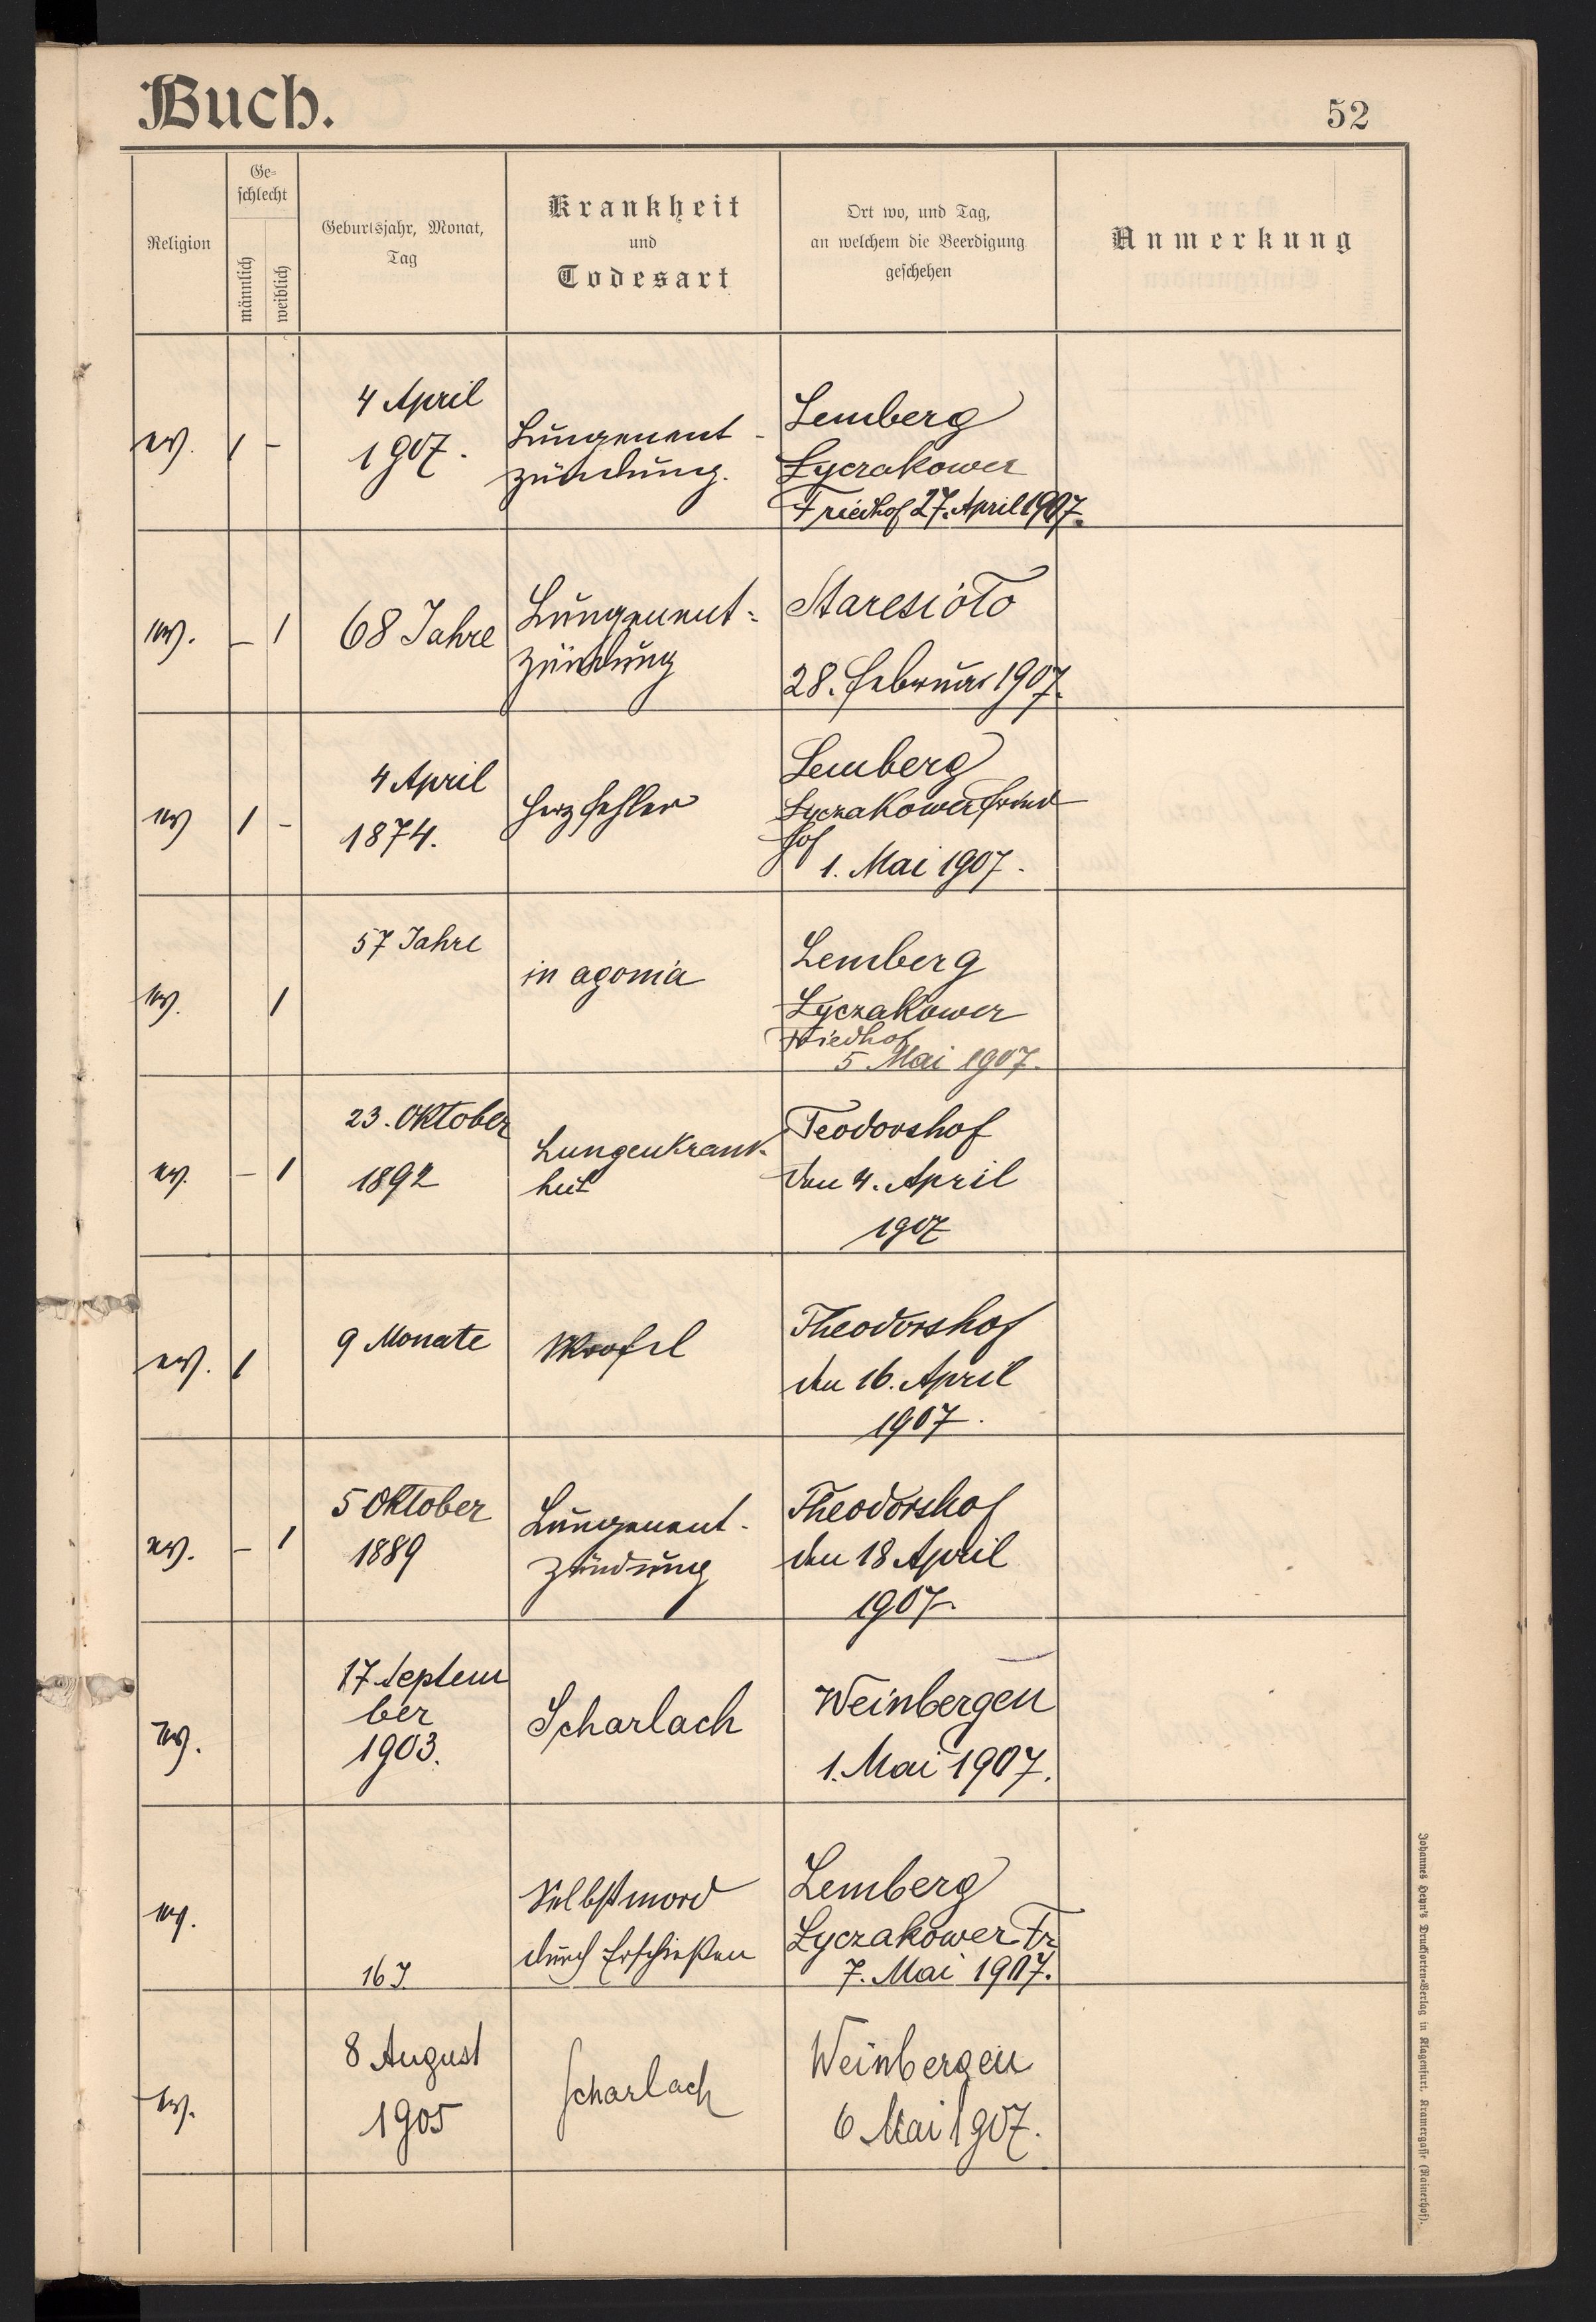 Buch.
52
Religion
Ge-
schlecht
männlich
weiblich
Geburtsjahr, Monat,
Tag
Krankheit
und
Todesart
Ort wo, und Tag,
an welchem die Beerdigung
geschehen
Anmerkung
ev. 1 -
4 April
1907.
Lungenent-
zündung.
Lemberg
Lyczakower
Friedhof 27. April 1907.
ev. - 1
68 Jahre
Lungenent-
zündung
Staresioło
28. Februar 1907.
ev 1 -
4 April
1874.
Herzfehler
Lemberg
Lyczakower Fried
hof
1. Mai 1907.
ev. 1
57 Jahre
in agonia
Lemberg
Lyczakower
Friedhof
5 Mai 1907.
ev. - 1
23. Oktober
1892
Lungenkrank-
heit
Teodorshof
den 4. April
1907
ev. 1
9 Monate
Theodorshof
den 16. April
1907.
ev. - 1
5 Oktober
1889
Lungenent-
zündung
Theodorshof
den 18 April
1907.
ev.
17 Septem
ber
1903.
Scharlach
Weinbergen
1. Mai 1907.
ev.
16 J.
Selbstmord
durch Erschießen
Lemberg
Lyczakower Fr
7. Mai 1907.
ev.
8 August
1905
Scharlach
Weinbergen
6 Mai 1907.
Johannes Heyn's Drucksorten-Verlag in Klagenfurt, Kramergasse (Rainerhof).